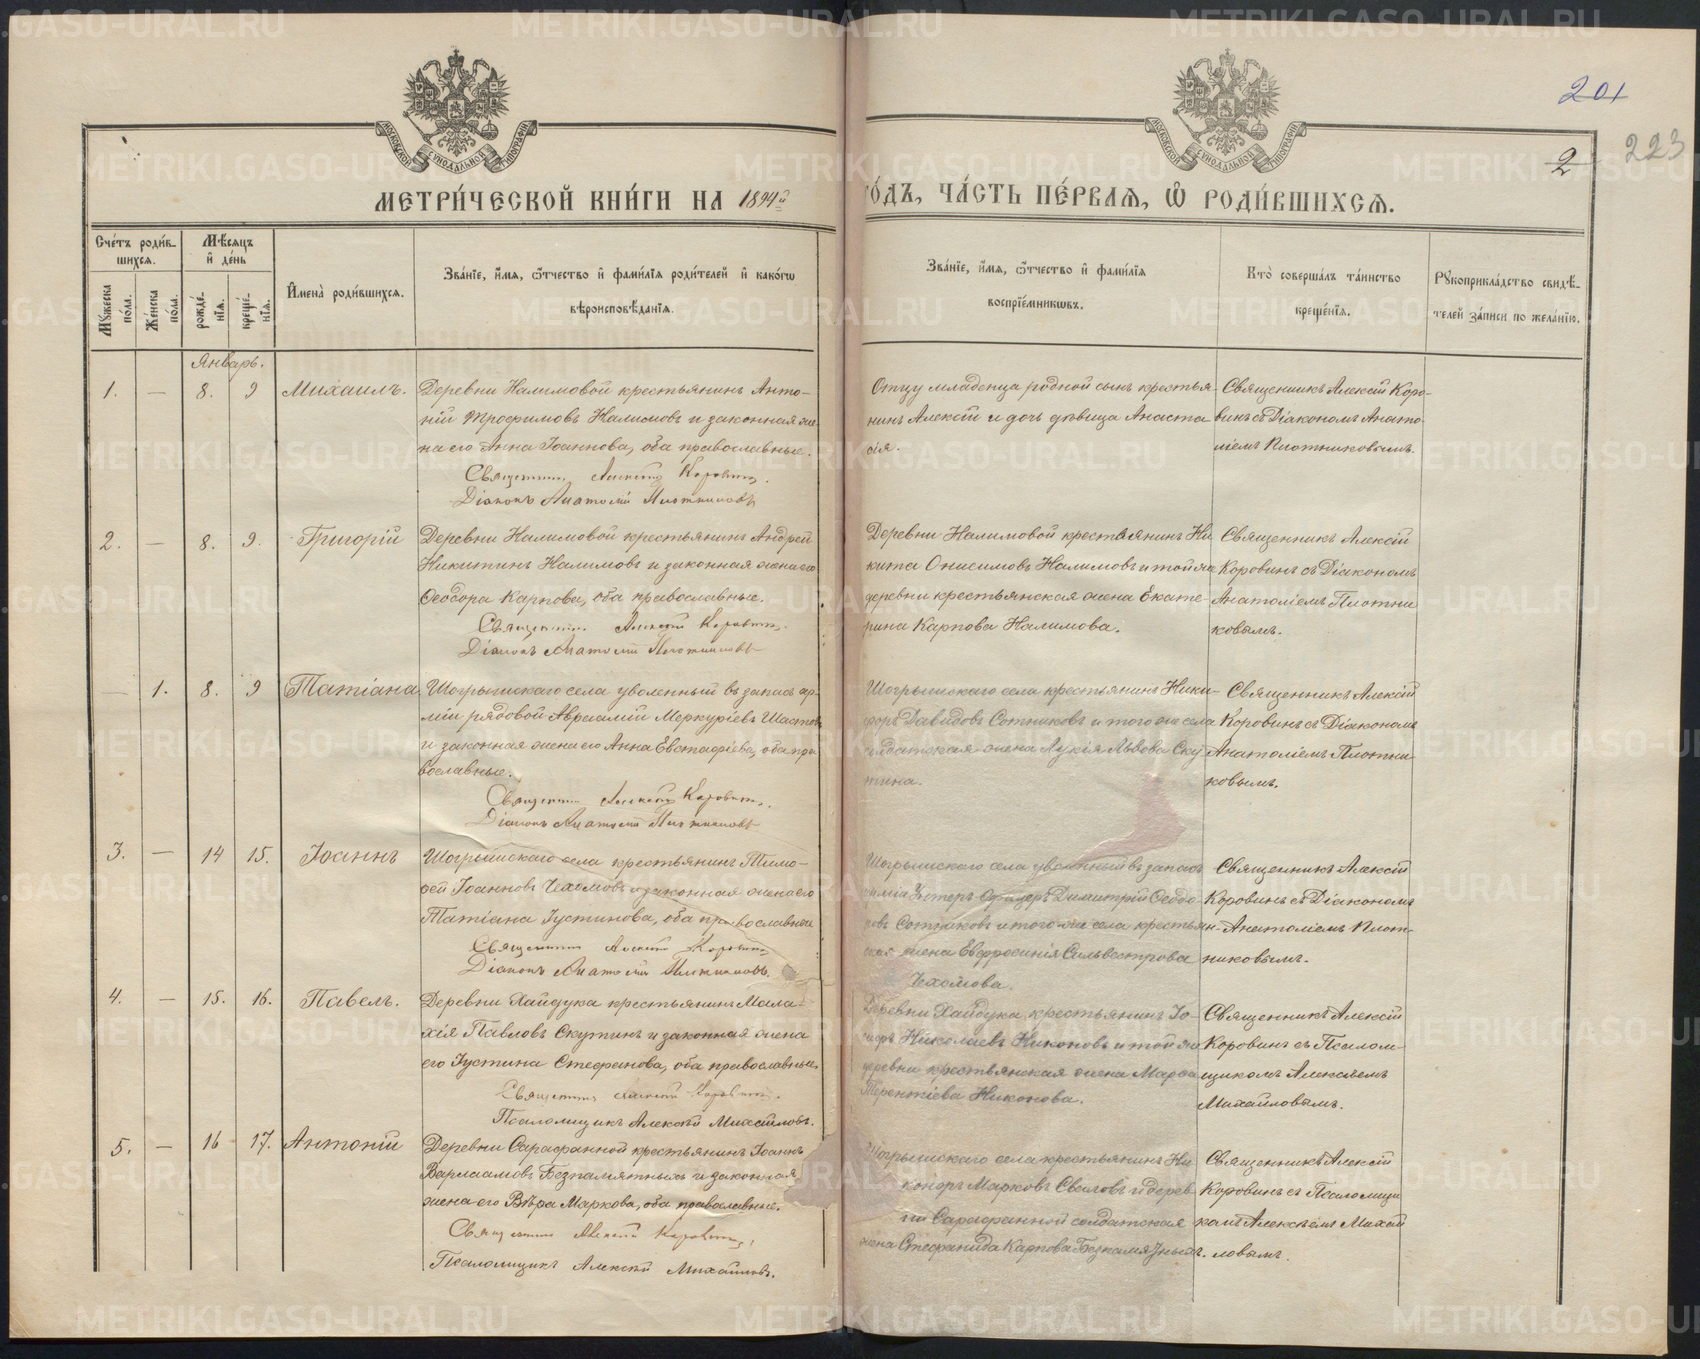 201
223
2
МОСКОВСКОЙ СѴНОДАЛЬНОЙ ТИПОГРАФІИ
МОСКОВСКОЙ СѴНОДАЛЬНОЙ ТИПОГРАФІИ
МЕТРИ́ЧЕСКОЙ КНИ́ГИ НА 1894й
ГО́ДЪ, ЧА́СТЬ ПЕ́РВАѦ, Ѡ҆ РОДИ́ВШИХСѦ.
Сче́тъ роди́в-
шихсѧ.
Мѣ́сѧцъ
и҆ де́нь
Мꙋ́жеска по́ла.
Же́нска по́ла.
рожде́нїѧ.
креще́нїѧ.
И҆мена̀ роди́вшихсѧ.
Зва́нїе, и҆́мѧ, ѻ҆́тчество и҆ фами́лїѧ роди́телей и҆ како́гѡ
вѣроисповѣ́данїѧ.
Зва́нїе, и҆́мѧ, ѻ҆́тчество и҆ фами́лїѧ
воспрїе́мникѡвъ.
Кто̀ соверша́лъ та́инство
креще́нїѧ.
Рꙋкоприкла́дство свидѣ́-
телей за́писи по жела́нїю.
Январь.
1. — 8. 9 Михаилъ.
Деревни Налимовой крестьянинъ Анто-
ній Трофимовъ Налимовъ и законная же
на его Анна Іоаннова, оба православные.
Священникъ Алексій Коровинъ.
Діаконъ Анатолій Плотниковъ
Отцу младенца родной сынъ крестья-
нинъ Алексій и дочь дѣвица Анаста
сія.
Священникъ Алексій Коро-
винъ съ Діакономъ Анато-
ліемъ Плотниковымъ.
2. — 8. 9. Григорій
Деревни Налимовой крестьянинъ Андрей
Никитинъ Налимовъ и законная жена его
Ѳеодора Карпова, оба православные.
Священникъ Алексій Коровинъ.
Діаконъ Анатолій Плотниковъ
Деревни Налимовой крестьянинъ Ни
кита Онисимовъ Налимовъ и той же
деревни крестьянская жена Екате-
рина Карпова Налимова.
Священникъ Алексій
Коровинъ съ Діакономъ
Анатоліемъ Плотни
ковымъ.
— 1. 8. 9 Татіана
Шогрышскаго села уволенный въ запасъ ар-
міи рядовой Авраамій Меркуріевъ
и законная жена его Анна Евстафіева, оба пра
вославные.
Священникъ Алексій Коровинъ.
Діаконъ Анатолій Плотниковъ
Шогрышскаго села крестьянинъ Ники-
форъ Давидовъ Сотниковъ и того же села
солдатская жена Лукія Львова Ску
тина.
Священникъ Алексій
Коровинъ съ Діакономъ
Анатоліемъ Плотни
ковымъ.
3. — 14 15. Іоаннъ
Шогрышскаго села крестьянинъ Тимо-
ѳей Іоанновъ Чехомовъ и законная жена его
Татіана Іустинова, оба православные
Священникъ Алексій Коровинъ
Діаконъ Анатолій Плотниковъ.
Шогрышскаго села уволенный въ запасъ
арміи Унтеръ Офицеръ Димитрій Ѳеодо-
ровъ Сотниковъ и того же села крестьян-
ская жена Евфросинія Сильвестрова
Чехомова.
Священникъ Алексій
Коровинъ съ Діакономъ
Анатоліемъ Плот-
никовымъ.
4. — 15. 16. Павелъ.
Деревни Хайдука крестьянинъ Мала-
хія Павловъ Скутинъ и законная жена
его Іустина Стефанова, оба православные.
Священникъ Алексій Коровинъ.
Псаломщикъ Алексѣй Михайловъ.
Деревни Хайдука крестьянинъ Іо-
сифъ Николаевъ Никоновъ и той же
деревни крестьянская жена Марѳа
Терентіева Никонова.
Священникъ Алексій
Коровинъ съ Псалом-
щикомъ Алексѣемъ
Михайловымъ.
5. — 16 17. Антоній
Деревни Сарафанной крестьянинъ Іоаннъ
Варлаамовъ Безпамятныхъ и законная
жена его Вѣра Маркова, оба православные.
Священникъ Алексій Коровинъ.
Псаломщикъ Алексѣй Михайловъ.
Шогрышскаго села крестьянинъ Ни
каноръ Марковъ и дерев-
ни Сарафанной солдатская
жена Стефанида Карпова Безпамятныхъ.
Священникъ Алексій
Коровинъ съ Псаломщи
комъ Алексѣемъ Михай
ловымъ.
METRIKI.GASO-URAL.RU